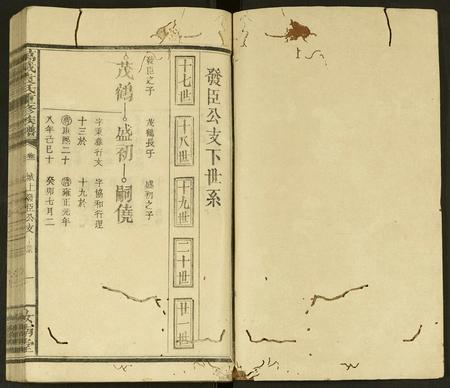 發臣公支下世系
十七世
十八世
十九世
二十世
廿一世
發臣之子
茂鶴
茂鶴長子
盛初
盛初之子
嗣僥
字秉彝行文
十三於
清康熙二十
八年己巳十
字協和行理
十九於
清雍正元年
癸卯七月二
族譜
城上發臣公支
一